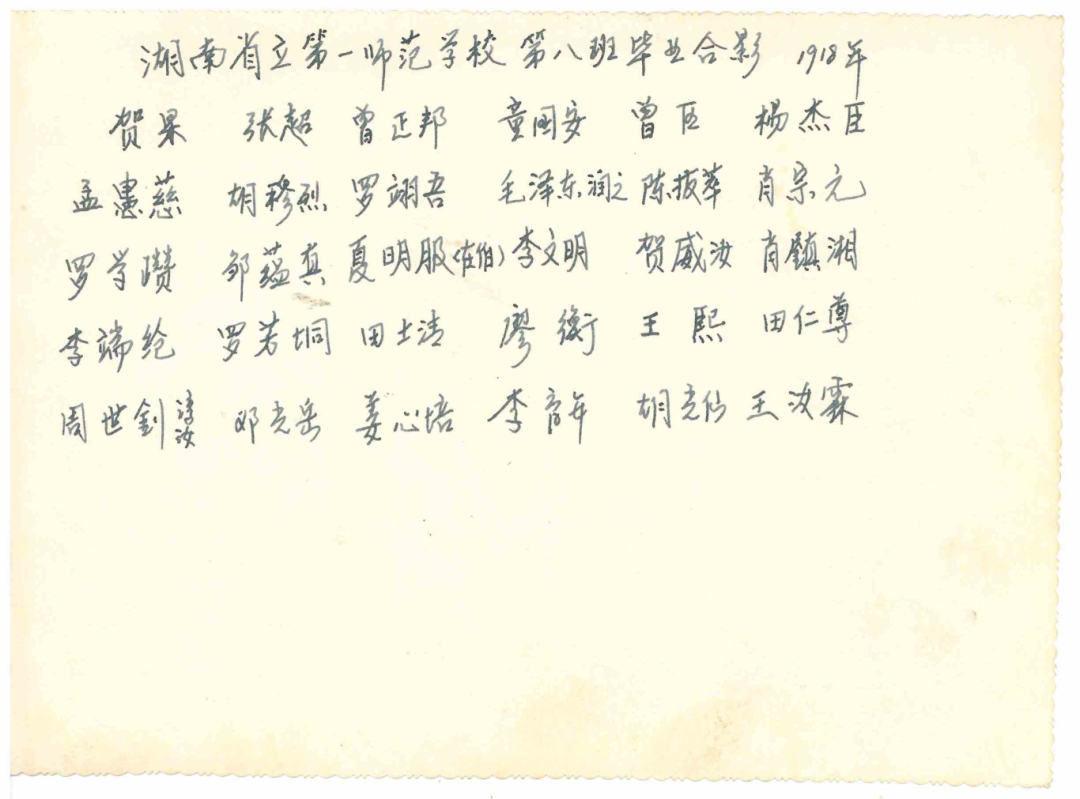 湖南省立第一师范学校 第八班毕业合影 1918年
贺果 张超 曾正邦 童国安 曾臣 杨杰臣
孟 慈 胡穆烈 罗翊吾 毛泽东润之 陈拔萃 肖宗元
罗学瓒 邹蕴真 夏明服(在伯) 李文明 贺威汝 肖镇湘
李端纶 罗芳垌 田士清 廖衡 王熙 田仁尊
周世釗 惇汝 邓光岳 姜心培 李育年 胡光仙 王汝霖